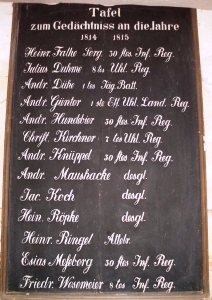 Tafel
zum Gedächtniss an die Jahre
1814 1815
Heinr. Falke Serg. 30 stes Inf. Reg.
Julius Dahme 8 tes Uhl. Reg.
Andr. Dühe 1 tes Jäg. Batt.
Andr. Günter 1 stes Elb. Land. Reg.
Andr. Hundeier 30 stes Inf. Reg.
Christ. Kirchner 7 tes Uhl. Reg.
Andr. Knüppel 30 stes Inf. Reg.
Andr. Maushacke desgl.
Jac. Koch desgl.
Hein. Röpke desgl.
Heinr. Rüngel
Esias Meseberg 30 stes Inf. Reg.
Friedr. Wesemeier 8 tes Inf. Reg.